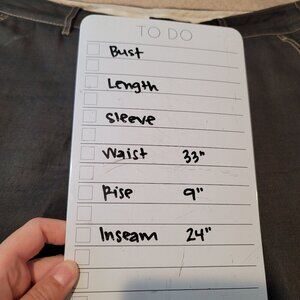 TO DO
Bust
Length
Sleeve
Waist 33"
Rise 9"
Inseam 24"